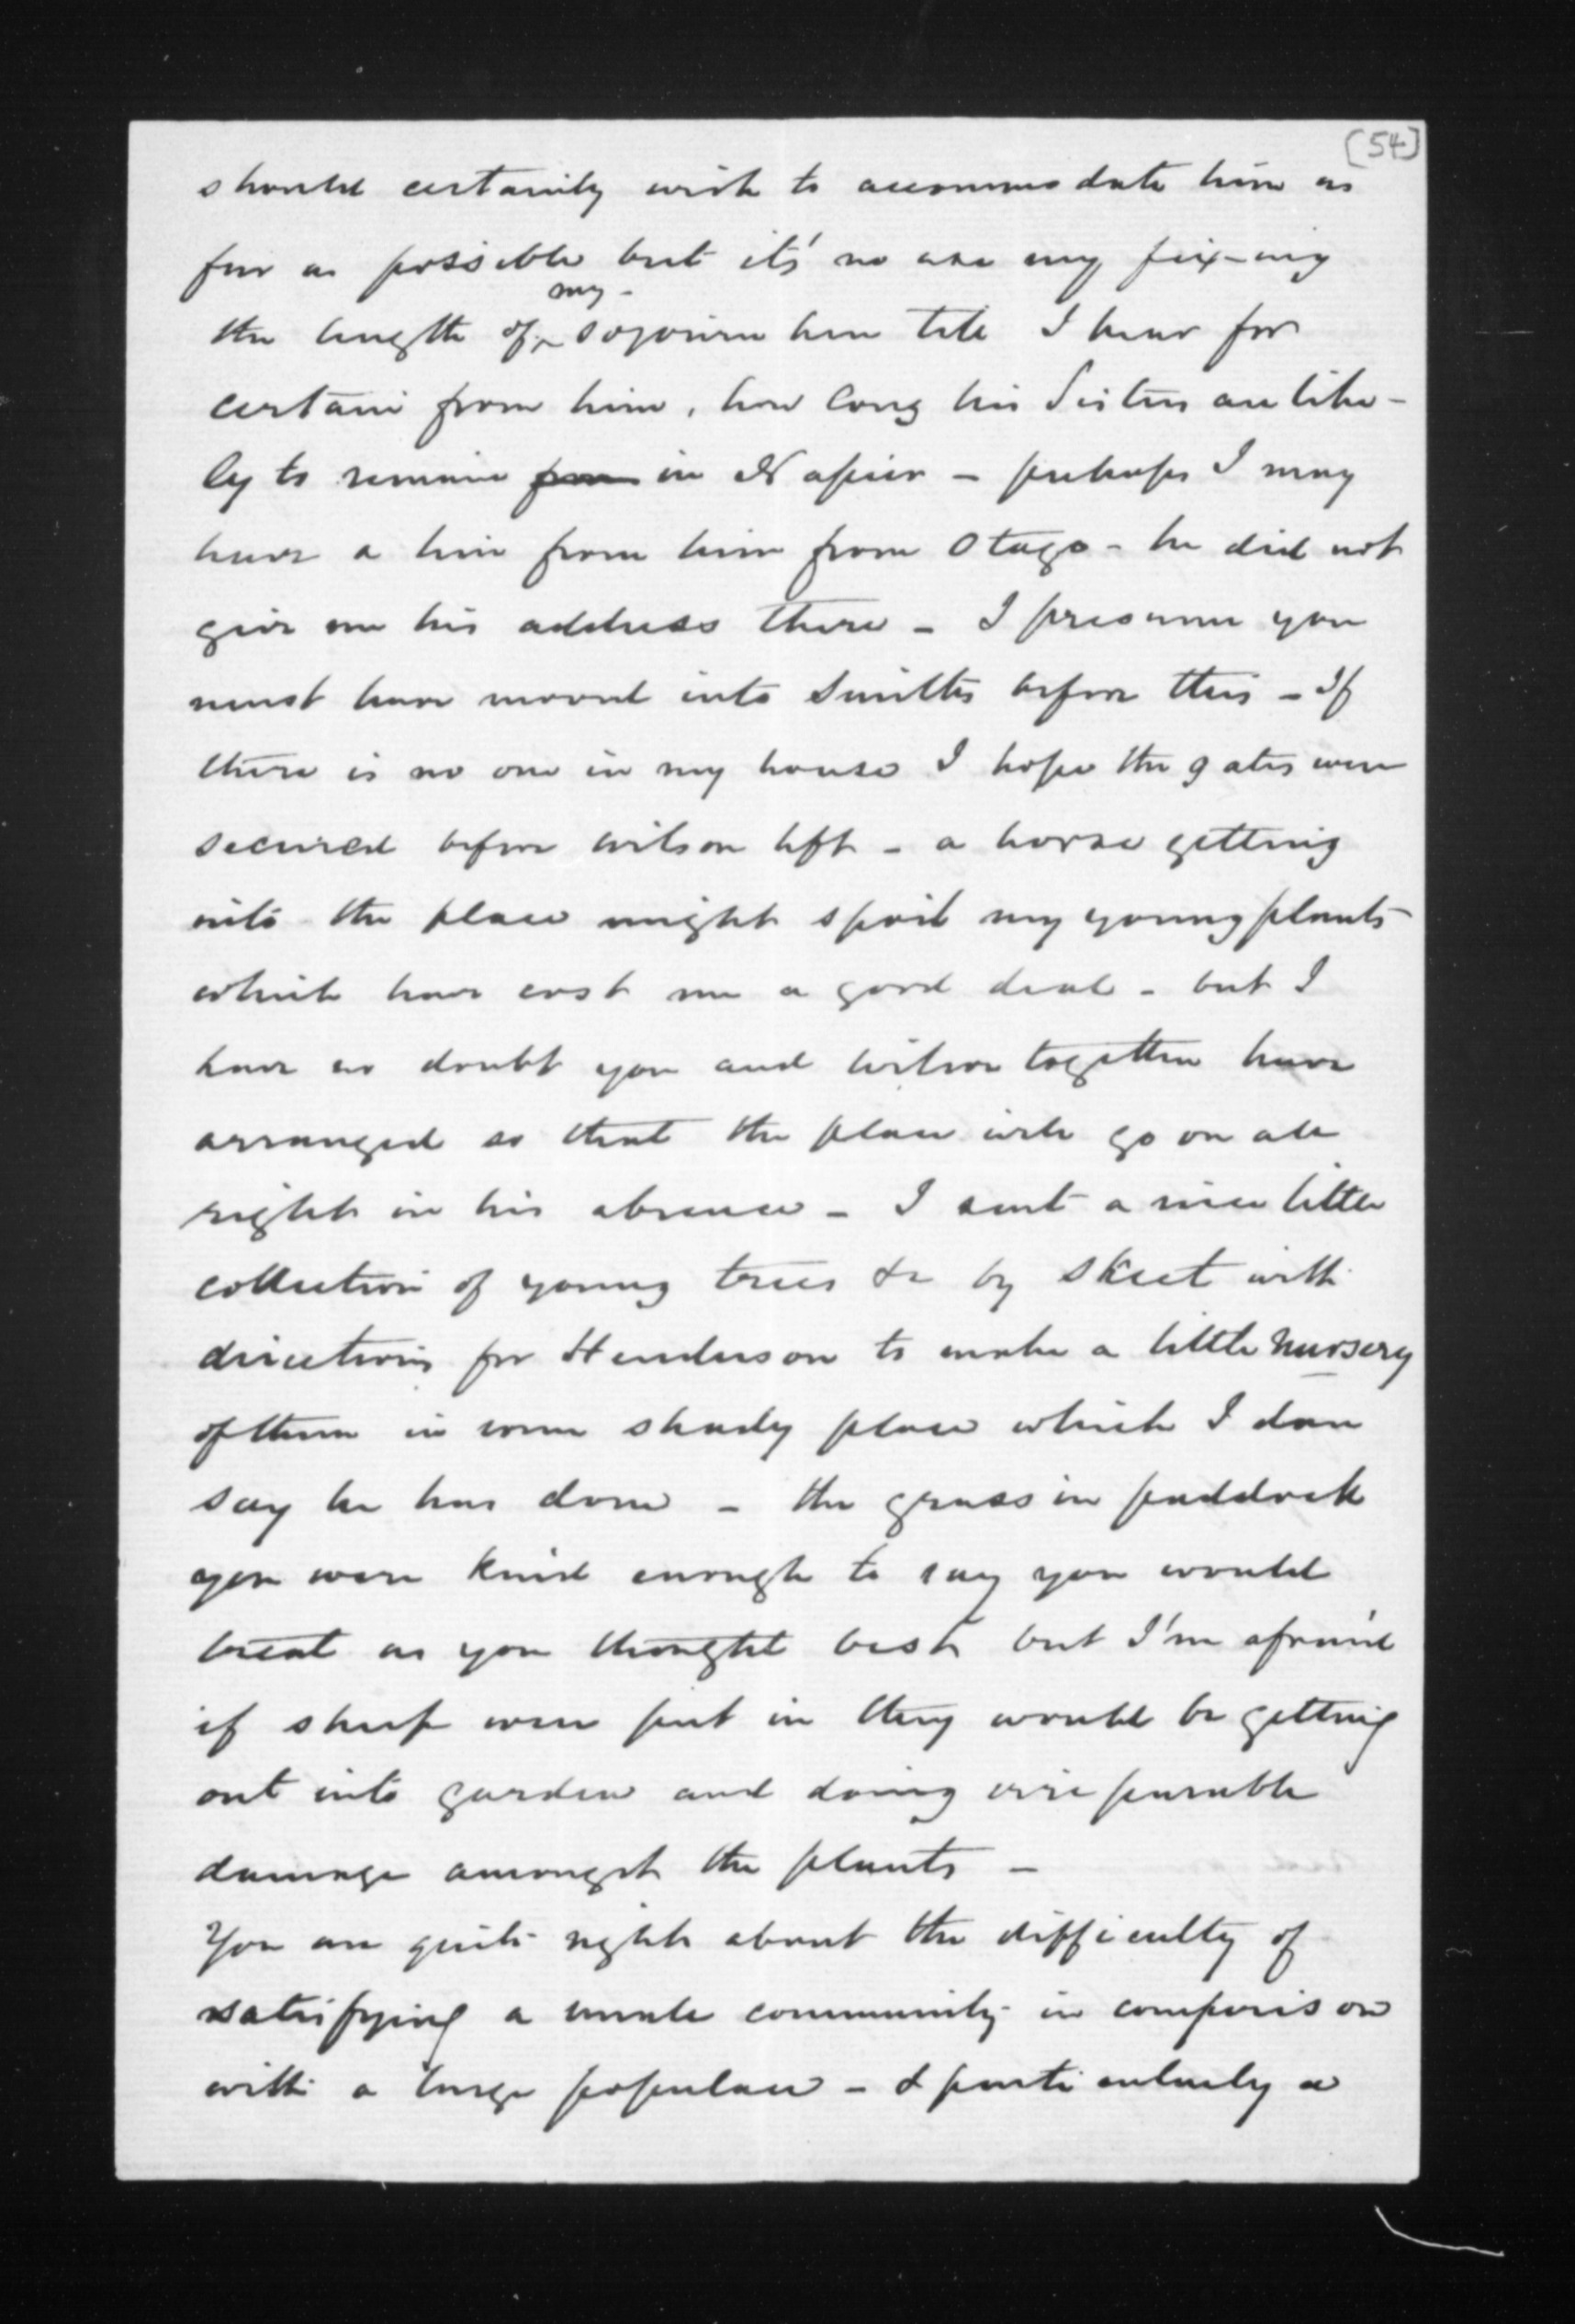 [54]
should certainly wish to accommodate him as
far as possible but it's no use my fix-ing
my -
the length of sojourn here till I hear for
certain from him, how long his Sisters are like-
ly to remain in Napier - perhaps I may
have a line from him from Otago - he did not
give me his address there - I presume you
must have moved into Smith's before this - If
there is no one in my house I hope the gates were
secured before Wilson left - a horse getting
into the place might spoil my young plants
which have cost me a good deal - but I
have no doubt you and Wilson together have
arranged so that the place will go on all
right in his absence - I sent a nice little
collection of young trees &c by Skeet with
directions for Henderson to make a little nursery
of them in some shady place which I dare
say he has done - the grass in paddock
you were kind enough to say you would
treat as you thought best but I'm afraid
if sheep were put in they would be getting
out into garden and doing irreparable
damage amongst the plants -
You are quite right about the difficulty of
satisfying a small community in comparison
with a large populace - & particularly a